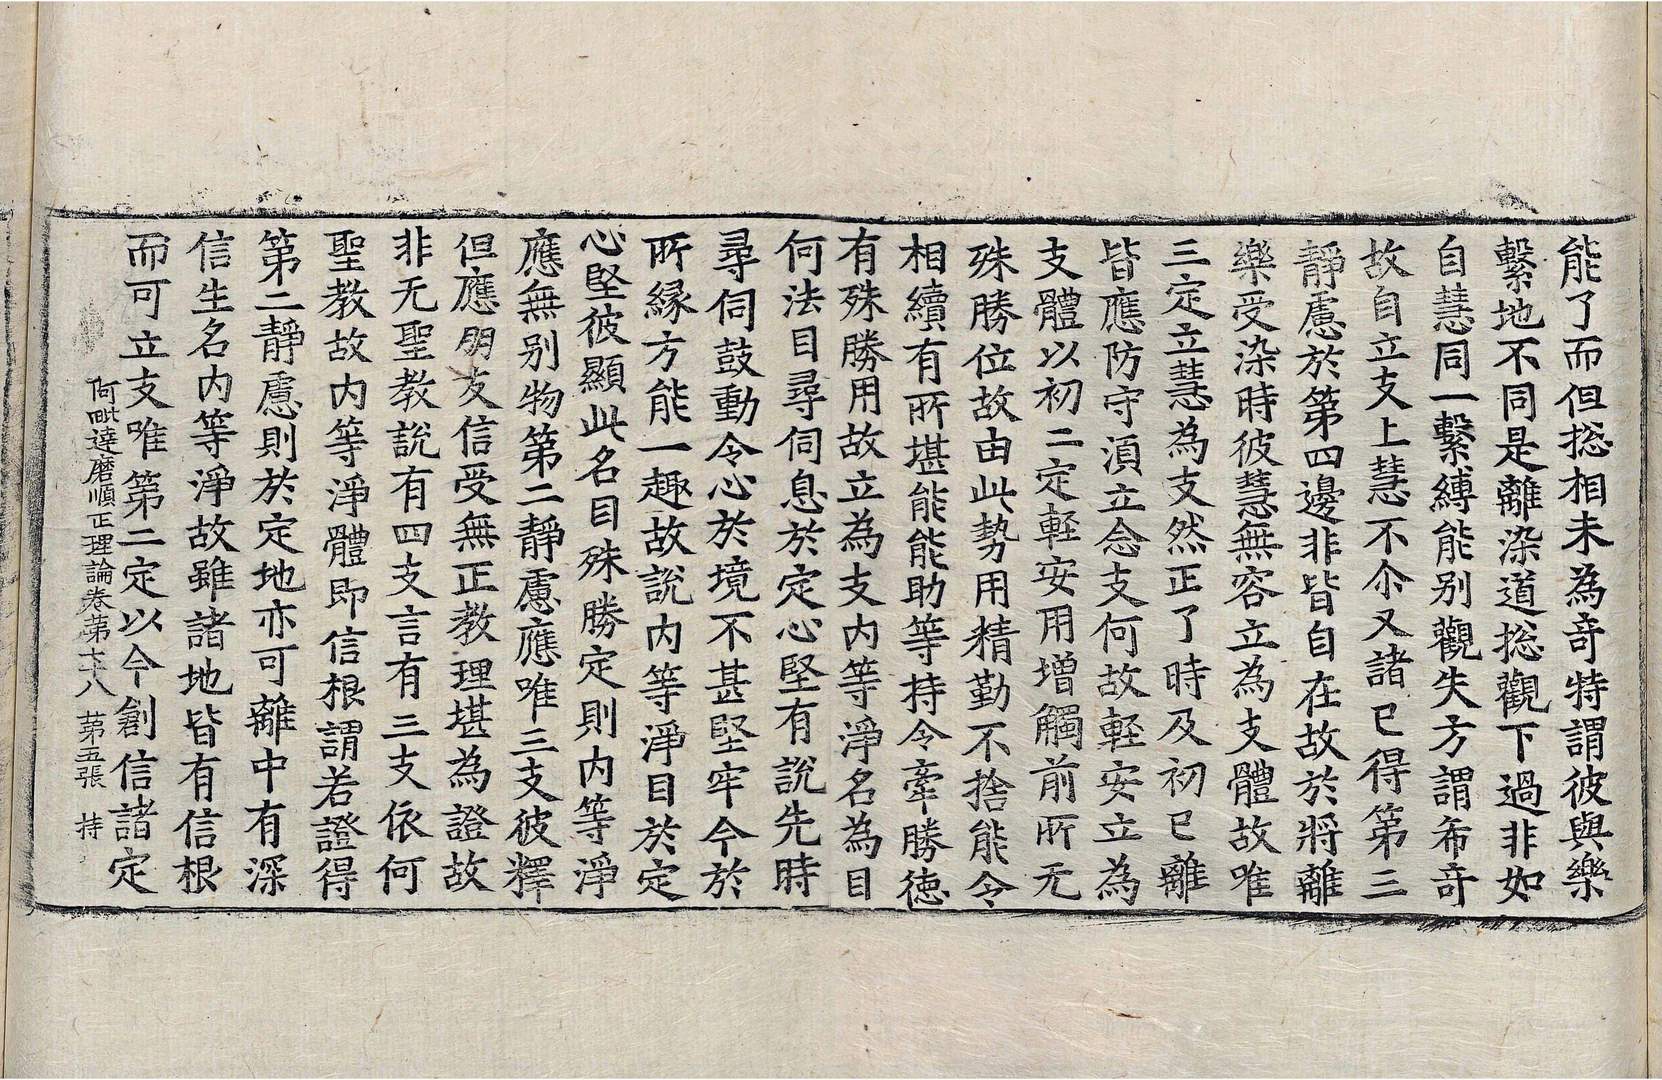 能了而但捴相未為竒特謂彼與樂
繫地不同是離染道捴觀下過非如
自慧同一繫縛能別觀失方謂希竒
故自立支上慧不尒又諸已得第三
靜慮於第四邊非皆自在故於將離
樂受染時彼慧無容立為支體故唯
三定立慧為支然正了時及初已離
皆應防守湏立念支何故輕安立為
支體以初二定輕安用增觸前所无
殊勝位故由此勢用精勤不捨能令
相續有所堪能能助等持令牽勝德
有殊勝用故立為支內等淨名為目
何法目尋伺息於定心堅有說先時
尋伺鼓動令心於境不甚堅牢今於
所緣方能一趣故說內等淨目於定
心堅彼顯此名目殊勝定則內等淨
應無別物第二靜慮應唯三支彼釋
但應朋友信受無正教理堪為證故
非无聖教說有四支言有三支依何
聖教故內等淨體即信根謂若證得
第二靜慮則於定地亦可離中有深
信生名內等淨故雖諸地皆有信根
而可立支唯第二定以今創信諸定
阿毗達磨順正理論卷第七十八 第五張 持